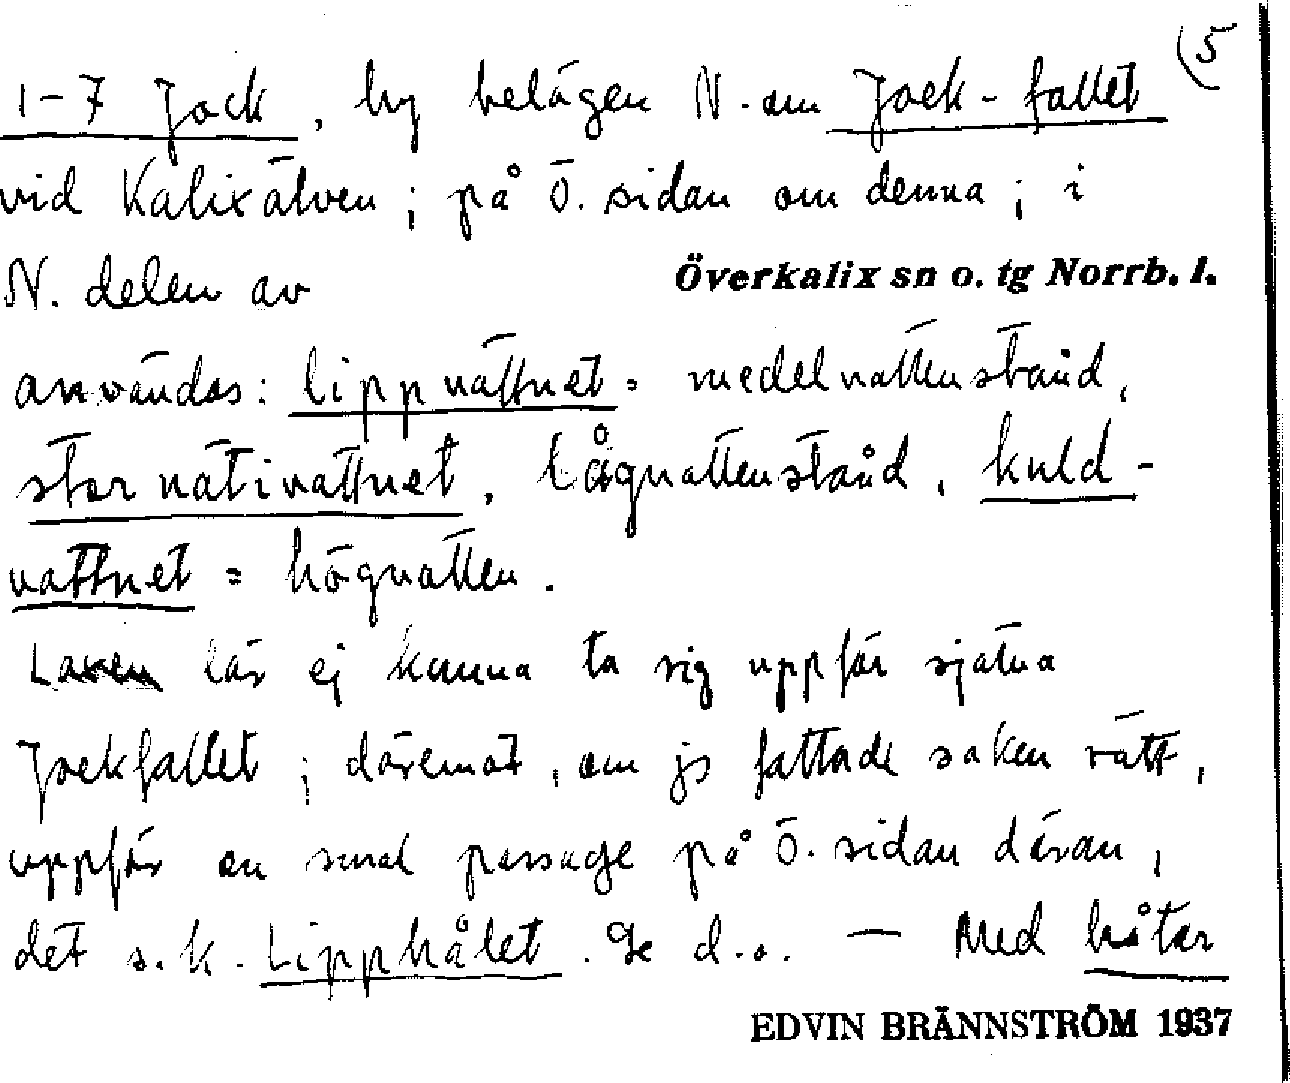 (5
1-7 Jock, by belägen N. om Jock-fallet
vid Kalixälven; på Ö. sidan om denna; i
N. delen av Överkalix sn o. tg Norrb. l.
användas: lippvattnet = medelvattenstånd,
stornätivattnet, lågvattenstånd, kuld-
vattnet = högvatten.
Laxen lär ej kunna ta sig uppför själva
Jockfallet; däremot, om jg fattade saken rätt,
uppför en smal passage på Ö. sidan däran,
det s.k. Lipphålet. Se d.o. — Med håtar
EDVIN BRÄNNSTRÖM 1937